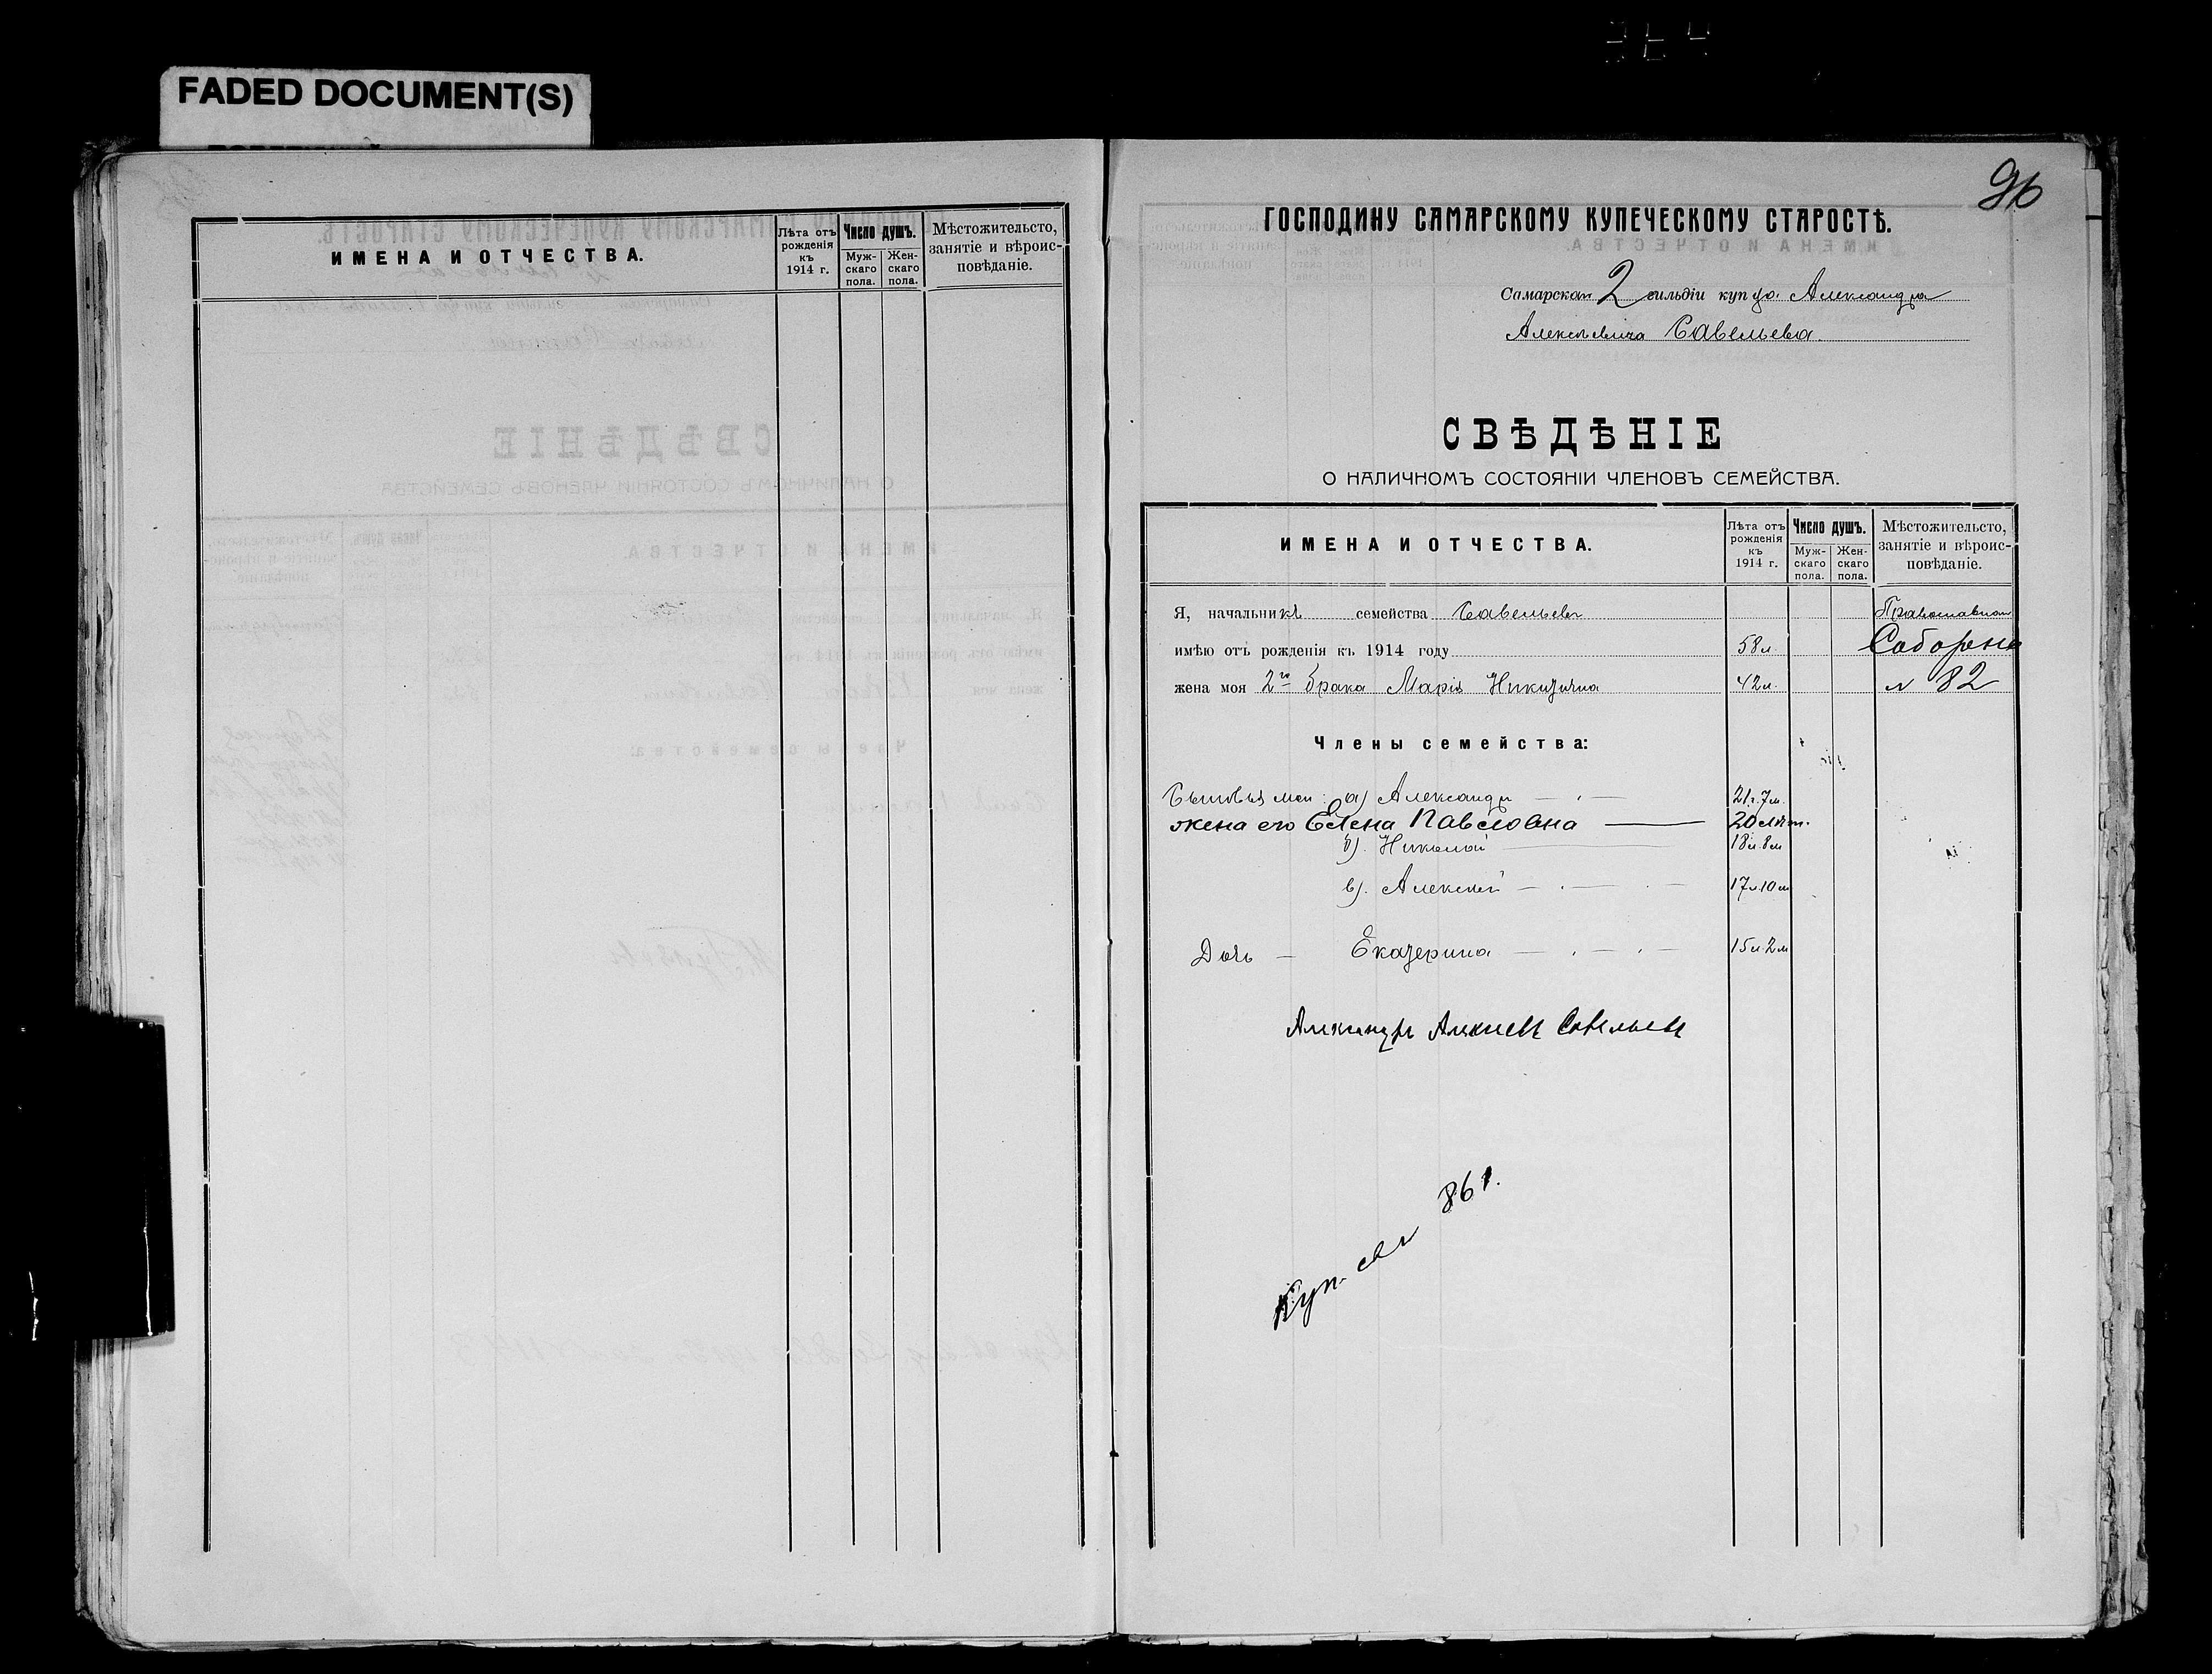 FADED DOCUMENT(S)
ИМЕНА И ОТЧЕСТВА.
Лѣта отъ рожденія къ 1914 г.
Число душъ.
Муж-скаго пола.
Жен-скаго пола.
Мѣстожительсто, занятіе и вѣроис-повѣданіе.
96
ГОСПОДИНУ САМАРСКОМУ КУПЕЧЕСКОМУ СТАРОСТѢ.
Самарскаго 2 гильдіи купца Александра
Алексѣевича Савельева.
СВѢДѢНІЕ
О НАЛИЧНОМЪ СОСТОЯНІИ ЧЛЕНОВЪ СЕМЕЙСТВА.
ИМЕНА И ОТЧЕСТВА.
Лѣта отъ рожденія къ 1914 г.
Число душъ.
Муж-скаго пола.
Жен-скаго пола.
Мѣстожительсто, занятіе и вѣроис-повѣданіе.
Я, начальникъ семейства Савельевъ Православнаго
имѣю отъ рожденія къ 1914 году 58 л. Соборная
жена моя 2го брака Марія Никитична 42 л. № 82
Члены семейства:
Сыновья мои: а) Александръ 21 г. 7 м.
жена его Елена Павловна 20 лѣтъ.
б). Николай 18 л. 8 м
в). Алексѣй 17 л. 10 м
Дочь — Екатерина 15 л. 2 м
Александръ Алексѣевъ Савельевъ
Куп. св. № 861.